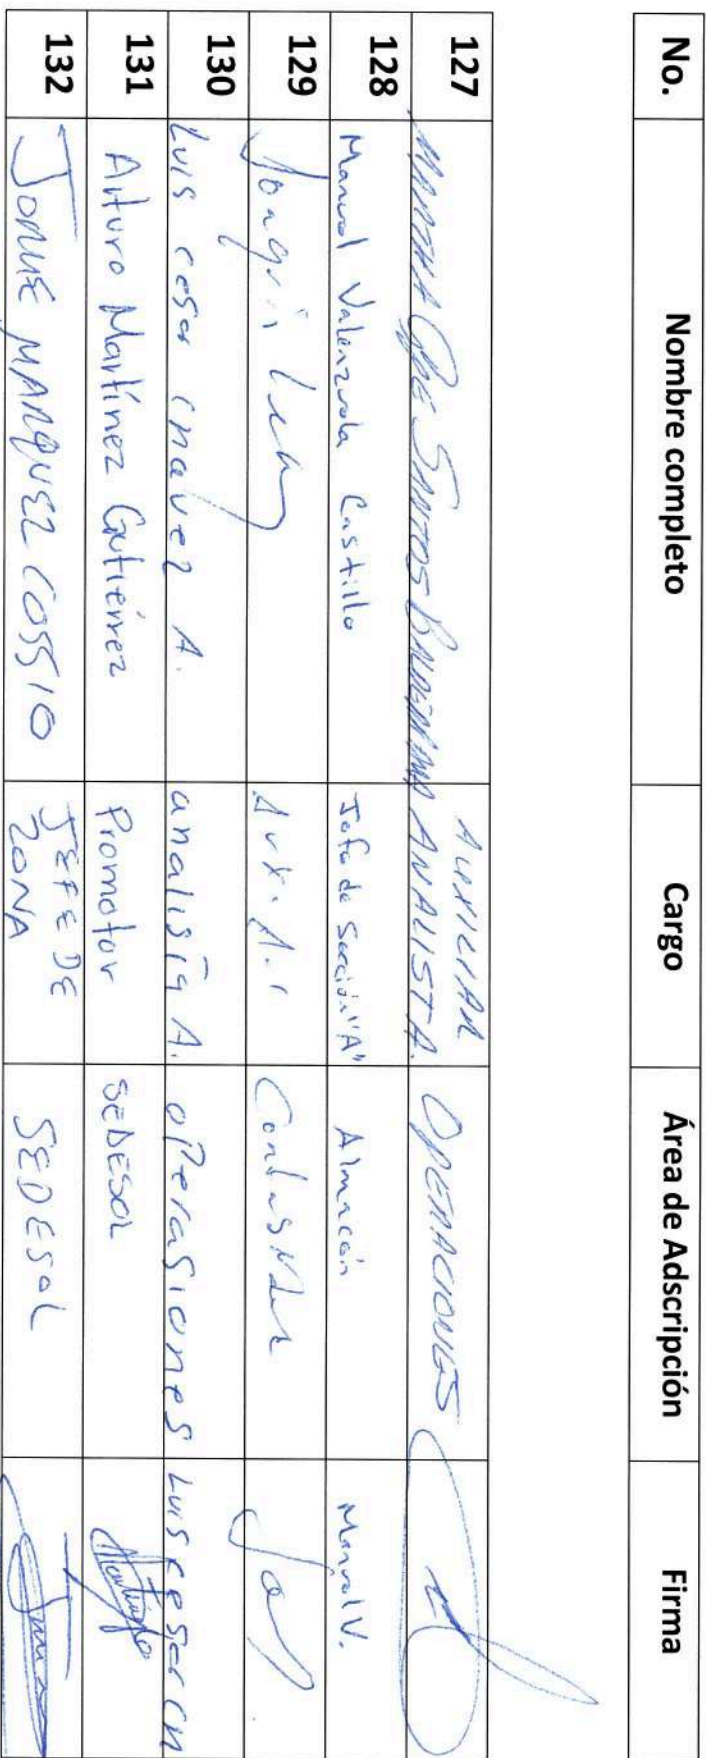 No. Nombre completo Cargo Área de Adscripción Firma
127 MARTHA GPE SANTOS BALDERRAMA AUXILIAR ANALISTA. OPERACIONES
128 Manuel Valenzuela Castillo Jefe de Sección "A" Almacén Manuel V.
129 Joaquin Aux. A.
130 Luis cesar chavez A. analista A. operasiones Luis cesar ch
131 Arturo Martínez Gutiérrez Promotor SEDESOL
132 JORGE MARQUEZ COSSIO JEFE DE ZONA SEDESOL